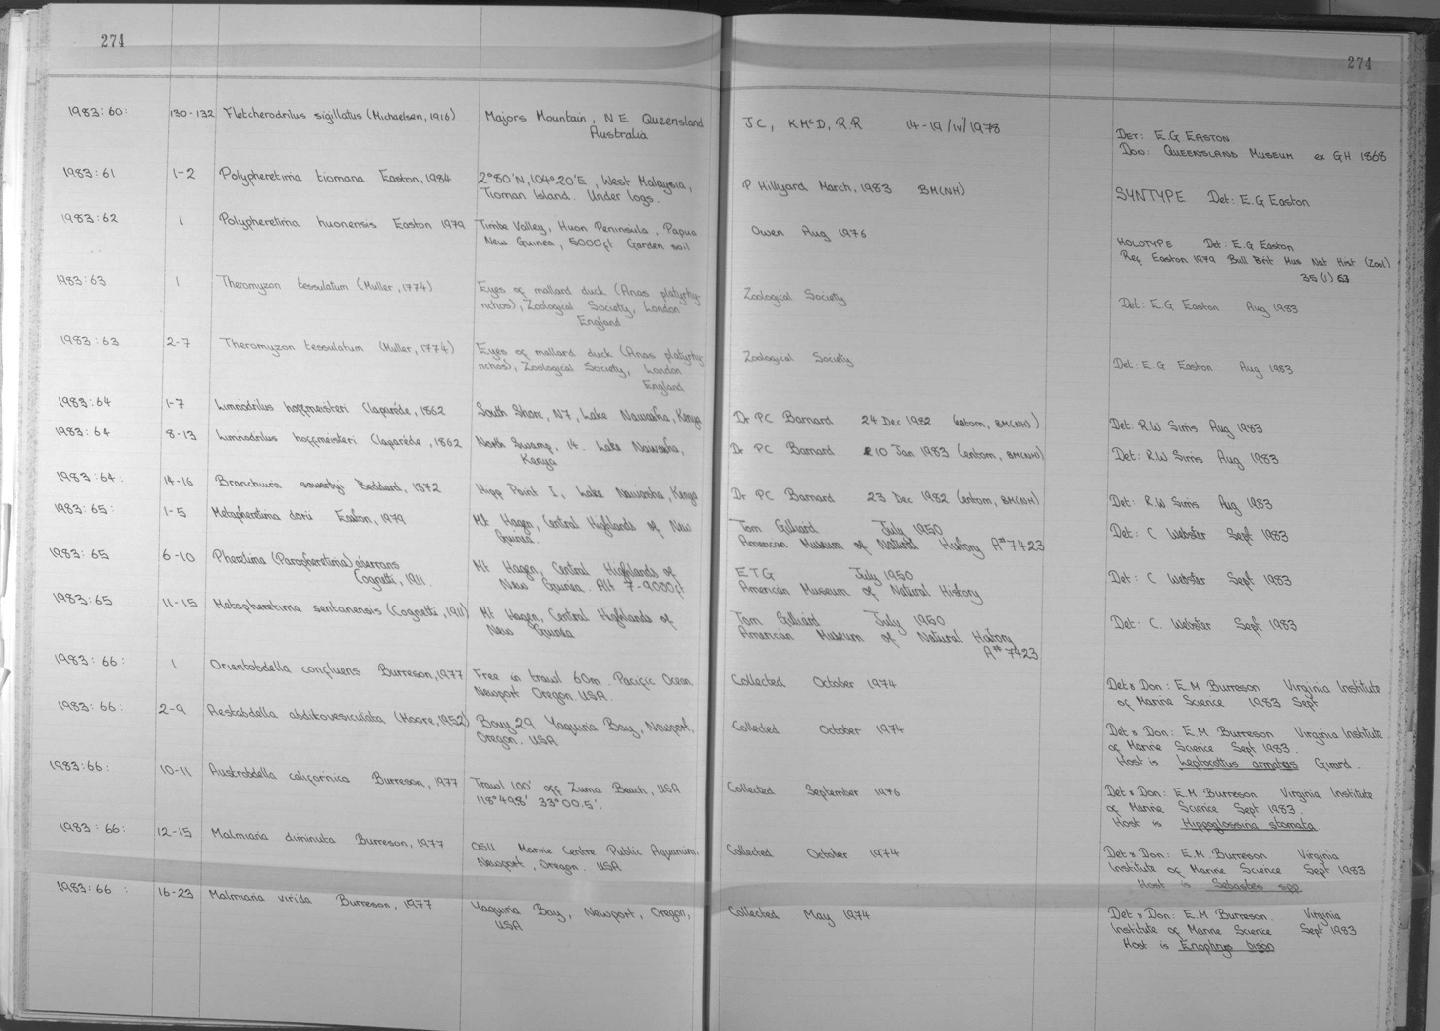 274
274
1983:60: 130-132 Fletcherodrilus sigillatus (Michaelsen, 1916) Majors Mountain, N E Queensland JC, KMcD, R.R 14-19/iv/1978
Australia DET: E.G EASTON
DON: QUEENSLAND MUSEUM ex GH 1868
1983:61 1-2 Polypheretima tiomana Easton, 1984 2°80'N, 104°20'E, West Malaysia, P Hillyard March, 1983 BM(NH) SYNTYPE Det: E.G Easton
Tioman Island. Under logs.
1983:62 1 Polypheretima huonensis Easton 1979 Timbe Valley, Huon Peninsula, Papua Owen Aug 1976 HOLOTYPE Det: E.G Easton
New Guinea, 5000ft Garden soil Reg Easton 1979 Bull Brit Mus Nat Hist (Zool)
35(1) 63
1983:63 1 Theromyzon tessulatum (Muller, 1774) Eyes of mallard duck (Anas platyrhy- Zoological Society Det: E.G Easton Aug 1983
nchos), Zoological Society, London
England
1983:63 2-7 Theromyzon tessulatum (Muller, 1774) Eyes of mallard duck (Anas platyrhy- Zoological Society Det: E.G Easton Aug 1983
nchos), Zoological Society, London
England
1983:64 1-7 Limnodrilus hoffmeisteri Claparéde, 1862 South Shore, N7, Lake Naivasha, Kenya Dr PC Barnard 24 Dec 1982 (entom, BM(NH)) Det: R.W Sims Aug 1983
1983:64 8-13 Limnodrilus hoffmeisteri Claparéde, 1862 North Swamp, 14. Lake Naivasha, Dr PC Barnard 10 Jan 1983 (entom, BM(NH) Det: R.W Sims Aug 1983
Kenya
1983:64: 14-16 Branchiura sowerbyi Beddard, 1892 Hipp Point I, Lake Naivasha, Kenya Dr PC Barnard 23 Dec 1982 (entom, BM(NH) Det: R.W Sims Aug 1983
1983:65: 1-5 Metapheretima dorii Easton, 1979 Mt Hagen, Central Highlands of New Tom Gilliard July 1950 Det: C Webster Sept 1983
Guinea. American Museum of Natural History A# 7423
1983:65 6-10 Pheretima (Parapheretima) aberrans Mt Hagen, Central Highlands of ETG July 1950 Det: C Webster Sept 1983
Cognetti, 1911. New Guinea. Alt 7-9000ft American Museum of Natural History
1983:65 11-15 Metapheretima sentanensis (Cognetti, 1911) Mt Hagen, Central Highlands of Tom Gilliard July 1950 Det: C. Webster Sept 1983
New Guinea American Museum of Natural History
A# 7423
1983:66: 1 Orientobdella confluens Burreson, 1977 Free in trawl 60m. Pacific Ocean Collected October 1974 Det & Don: E.M Burreson Virginia Institute
Newport Oregon USA. of Marine Science 1983 Sept
1983:66: 2-9 Aestabdella abditovesiculata (Moore, 1952) Bouy 29 Yaquina Bay, Newport, Collected October 1974 Det & Don: E.M Burreson Virginia Institute
Oregon. USA of Marine Science Sept 1983.
Host is Leptocottus armatus Girard.
1983:66: 10-11 Austrobdella californica Burreson, 1977 Trawl 100' off Zuma Beach, USA Collected September 1976 Det & Don: E.M Burreson Virginia Institute
118°49.8' 33°00.5'. of Marine Science Sept 1983.
Host is Hippoglossina stomata
1983:66: 12-15 Malmiana diminuta Burreson, 1977 OSU Marine Centre Public Aquarium, Collected October 1974 Det & Don: E.M. Burreson Virginia
Newport, Oregon. USA Institute of Marine Science Sept 1983
Host is Sebastes spp
1983:66: 16-23 Malmiana virida Burreson, 1977 Yaquina Bay, Newport, Oregon, Collected May 1974 Det & Don: E.M Burreson. Virginia
USA Institute of Marine Science Sept 1983
Host is Enophrys bison